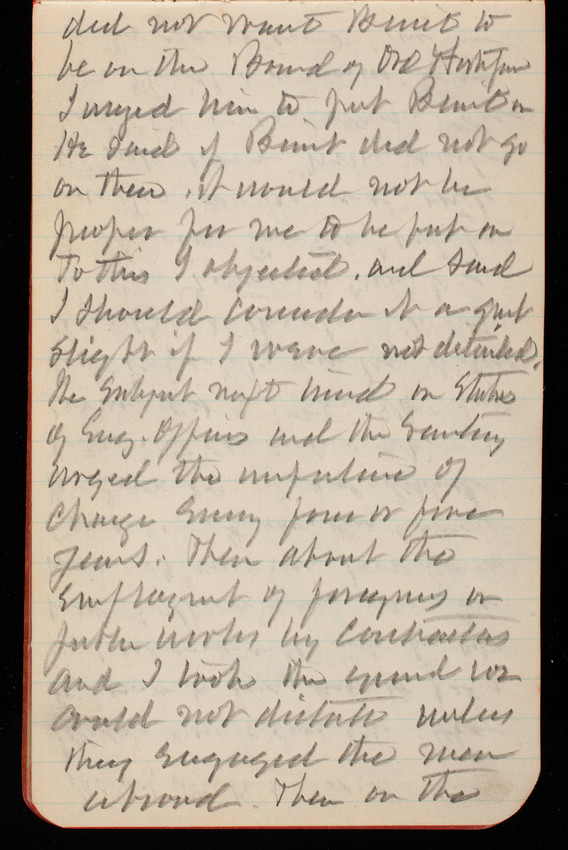 did not want Benét to
be on the Board of Ord & Fortifn
I urged him to put Benét on
He said if Benét did not go
on there, it would not be
proper for me to be put on
To this I objected, and said
I should consider it a great
slight if I were not detailed.
The subject next turned on Status
of Eng. Officers and the Secretary
urged the importance of
change every four or five
years. Then about the
employment of foreigners on
public works by Contractors
and I took the ground we
could not dictate unless
they engaged the men
abroad. Then on the